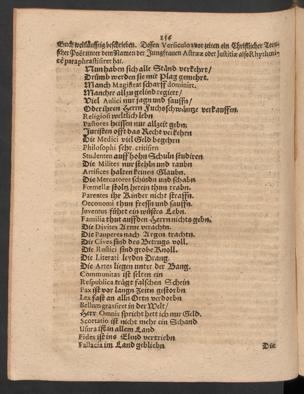 256
Buch weitläufftig beschrieben. Dessen Versiculos vor zeiten ein Christlicher Teut-
scher Poët unter dem Namen der Jungfrauen Astrææ oder Justitiæ also Rhythmi-
cè paraphrastisiret hat.
Nun haben sich alle Ständ verkehrt/
Drümb werden sie mit Plag gemehrt.
Manch Magistrat scharff dominirt,
Mancher allzu gelind regiert/
Viel Aulici nur jagn und sauffn/
Oder ihren Herrn Fuchsschwäntze verkauffen.
Religiosi weltlich lebn
Pastores heissen nur allzeit gebn.
Juristen offt das Recht verkehren
Die Medici viel Geld begehren
Philosophi sehr critisirn
Studenten auff hohn Schuln studiren
Die Milites nur stehln und raubn
Artifices halten keinen Glaubn.
Die Mercatores schindn und schabn
Fœmellæ stoltz herein thun trabn.
Parentes ihr Kinder nicht straffn.
Oeconomi thun fressn und sauffn.
Juventus führt ein wüstes Lebn.
Familia thut auff den Herrn nichts gebn.
Die Divites Arme verachtn.
Die Pauperes nach Argen trachtn.
Die Cives sind des Betrugs voll.
Die Rustici sind grobe Knoll.
Die Literati leyden Drang.
Die Artes liegen unter der Bang.
Communitas ist selten ein
Respublica trägt falschen Schein
Pax ist vor langn Zeitn gestorbn
Lex fast an alln Ortn verdorbn
Bellum grassiret in der Welt/
Herr Omnis spricht hett ich nur Geld.
Scortatio ist nicht mehr ein Schand
Usura ist in allem Land
Fides ist ins Elend vertriebn
Fallacia im Land gebliebn
Die